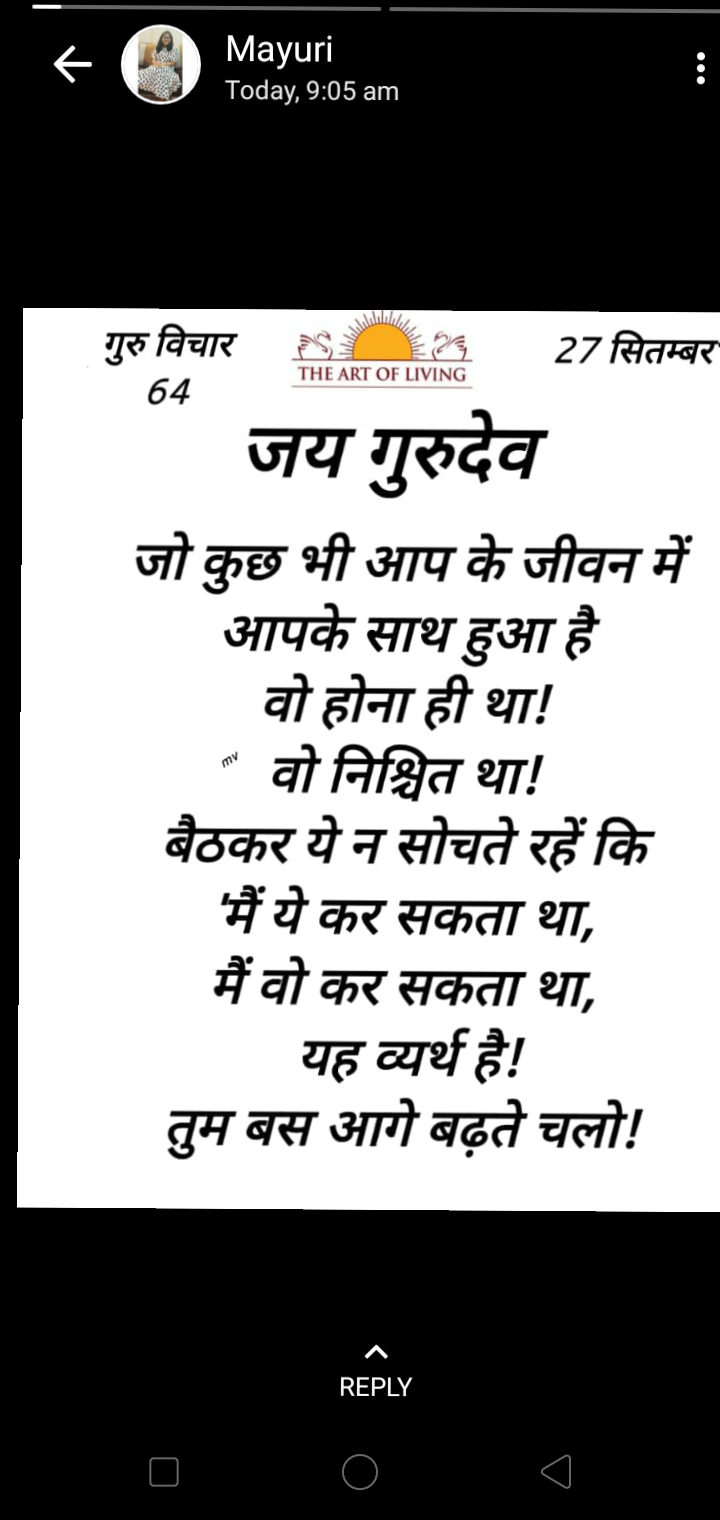 Mayuri
Today, 9:05 am
गुरु विचार
64
THE ART OF LIVING
27 सितम्बर
जय गुरुदेव
जो कुछ भी आप के जीवन में
आपके साथ हुआ है
वो होना ही था!
mv
वो निश्चित था!
बैठकर ये न सोचते रहें कि
'मैं ये कर सकता था,
मैं वो कर सकता था,
यह व्यर्थ है!
तुम बस आगे बढ़ते चलो!
REPLY